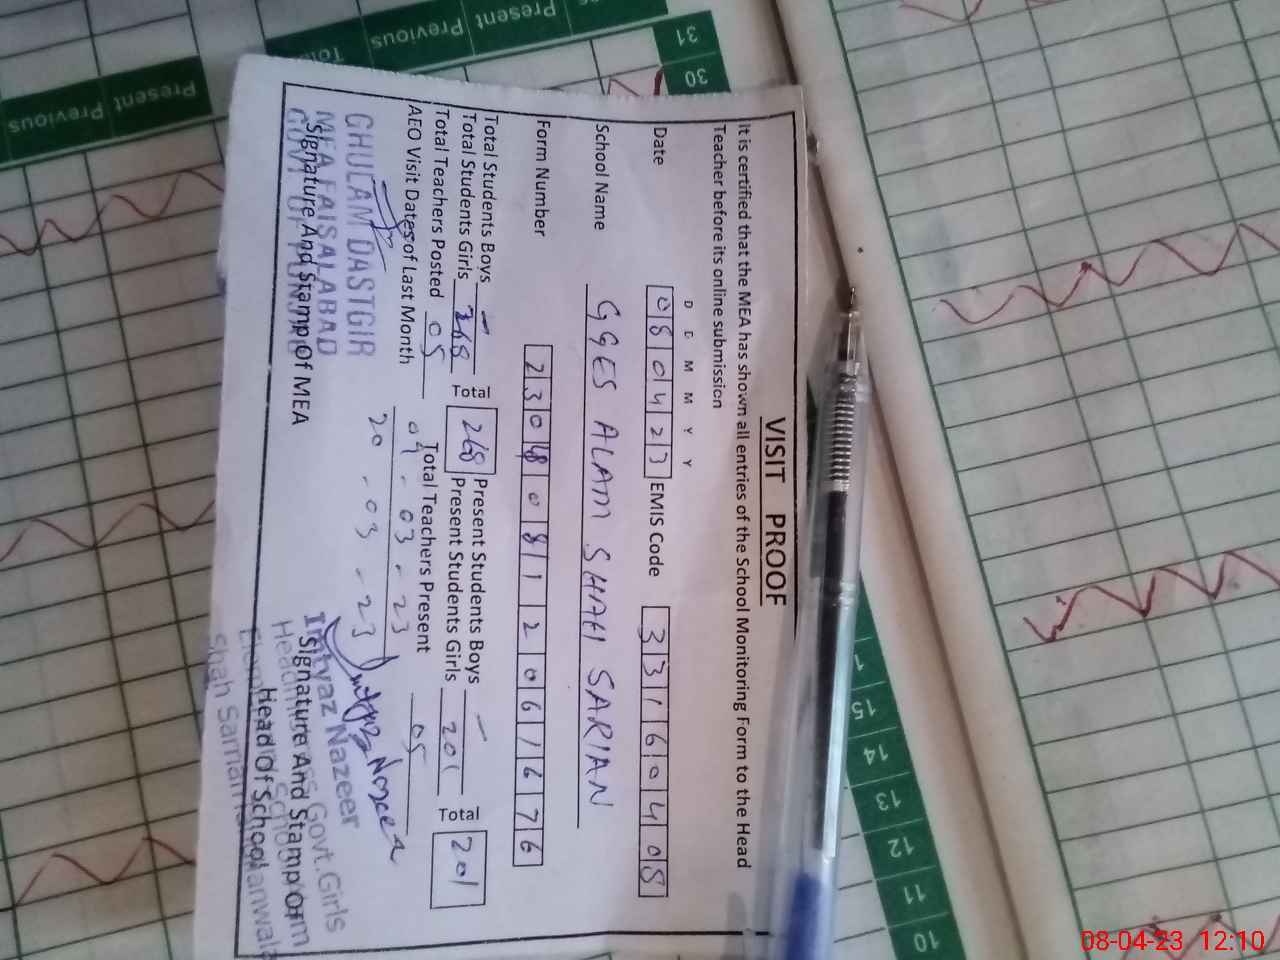 VISIT PROOF
It is certified that the MEA has shown all entries of the School Monitoring Form to the Head
Teacher before its online submission
D D M M Y Y
Date 080423 EMIS Code 33160408
School Name GGES ALAM SHAH SARIAN
Form Number 23080812061676
Total Students Boys - Present Students Boys -
Total Students Girls 268 Total 268 Present Students Girls 201 Total 201
Total Teachers Posted 05 Total Teachers Present 05
AEO Visit Dates of Last Month 09.03.23
20.03.23
GHULAM DASTGIR
MEA FAISALABAD
GOVT OF PUNJAB
Signature And Stamp Of MEA
Imtyaz Nazeer
Signature And Stamp Of
Head Of School
Govt. Girls
Shah
Present Previous
Present Previous
31
30
1
15
14
13
12
11
10
08-04-23 12:10